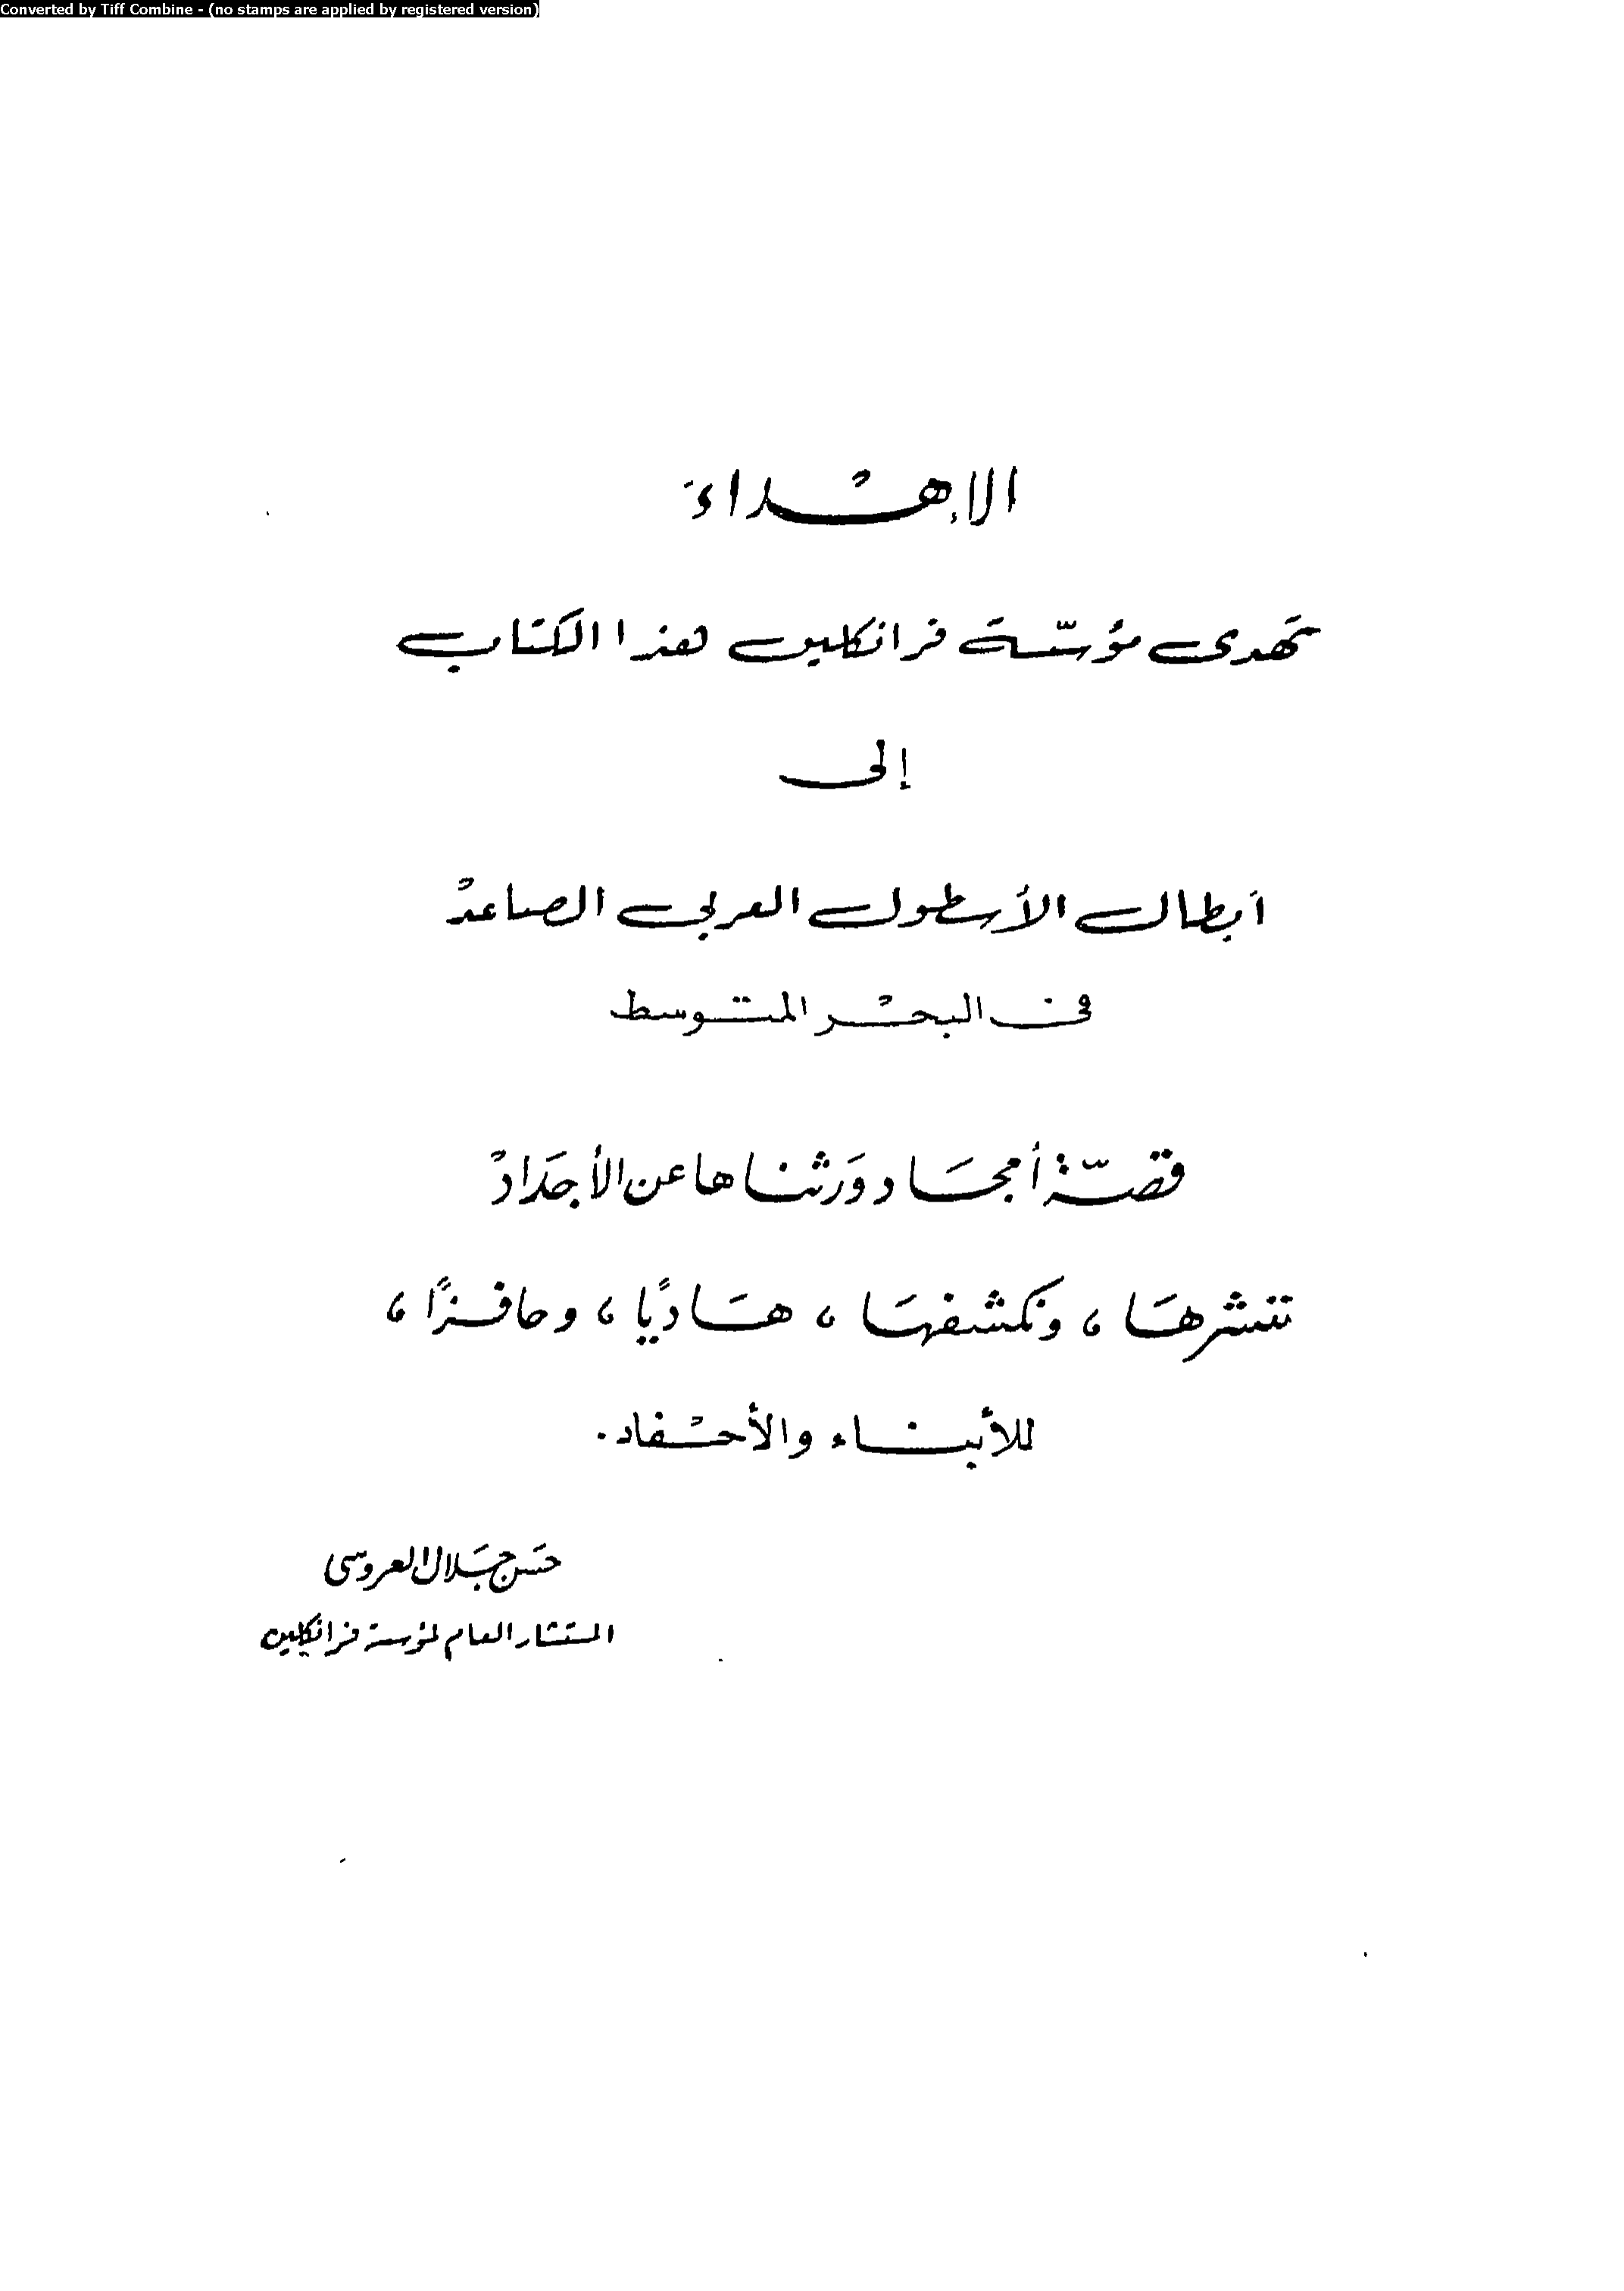 Converted by Tiff Combine - (no stamps are applied by registered version)
الإهْداءَ
تهدى مؤسّسة فرانكلين هذا الكتاب
إلى
أبطال الأسطول العربى الصاعدْ
فى البحْر المتوسط
قصّة أمجَاد وَرثناها عن الأجدَادْ
ننشرهَا، ونكشفهَا، هَاديًا، وحافزًا،
للأبناء والأحْفاد.
حسَن جَلال العروسى
المستشار العام لمؤسسة فرانكلين